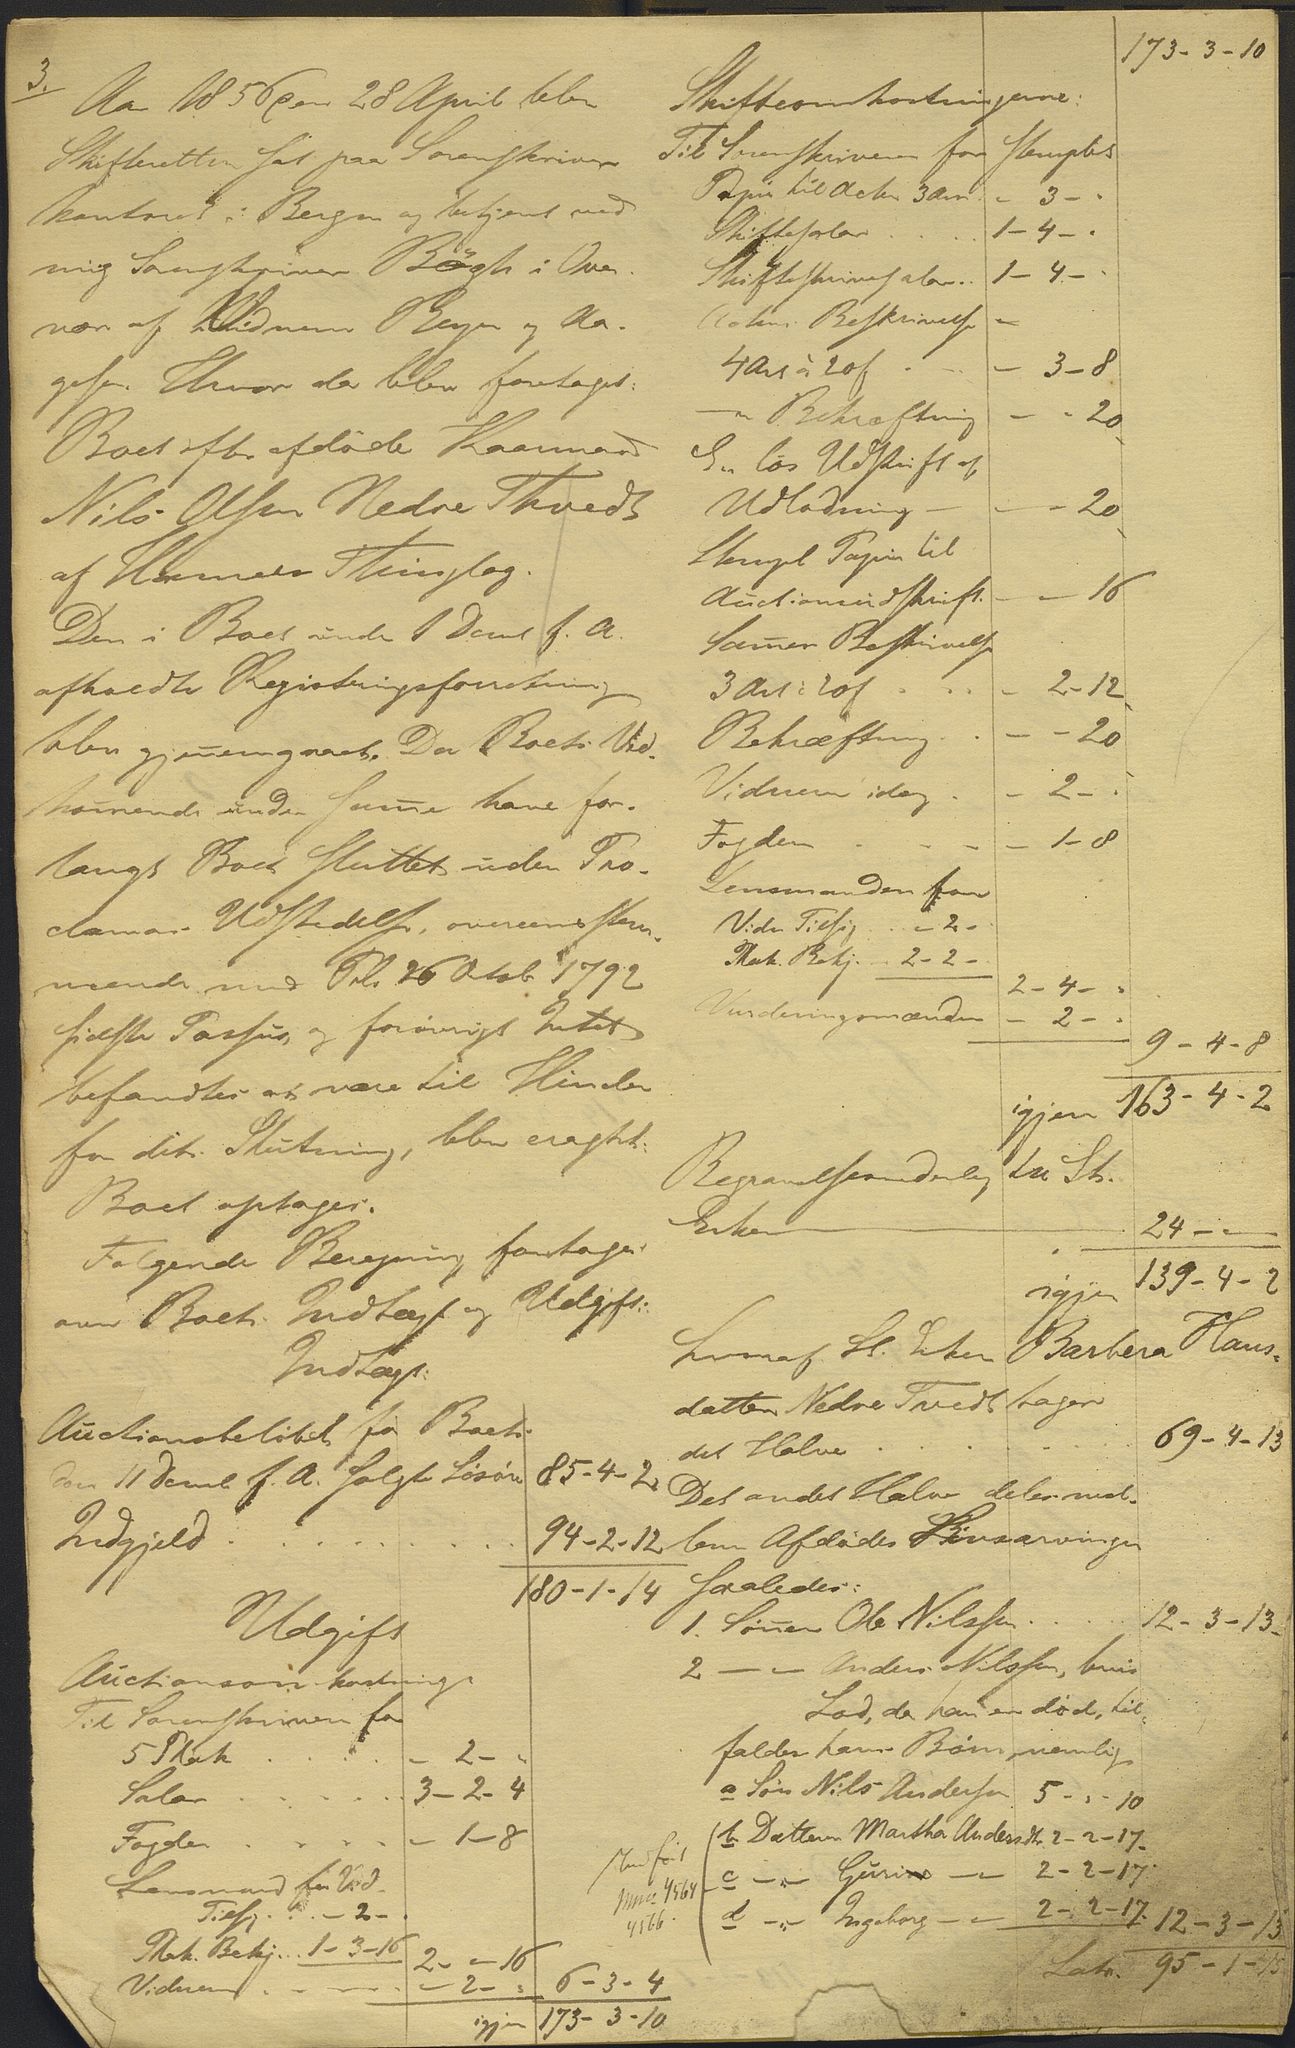 3.
Aar 1856 den 28 April blev
Skifteretten sat paa Sorenskriver
kontoret i Bergen og betjent ved
mig Sorenskriver Bøgh i Over-
vær af Vidnerne Beyer og Aa-
gesen. Hvor da blev foretaget:
Boet efter afdøde Kaarmand
Nils Olsen Nedre Thvedt
af Thinglag.
Den i Boet under 1 Decmb f. A.
afholdte Registreringsforretning
blev gjennemgaaet. Da Boets Ved-
kommende under samme have for-
langt Boet sluttet uden Pro-
clamas Udstedelse, overeensstem-
mende med Pl. 26 Octob 1792
sidste Passus, og forøvrigt Intet
befandtes at være til Hinder
for dets Slutning, blev eragtet:
Boet optages.
Følgende Beregning foretages
over Boets Indtægt og Udgift:
Indtægt:
Auctionsbeløbet for Boets
den 11 Decmb f. A. solgte Løsøre 85-4-2
Indgjeld . . . . . . . . 94-2-12
180-1-14
Udgift
Auctionsomkostninger
Til Sorenskriveren for
5 Plak . . . . - 2- "
Salær . . . . . . 3-2-4
Fogden . . . . . - 1-8
Lensmand for Vid
Tilsig . . - 2- .
Plak. Bekj. . . 1-3-16 2- " -16
Vidnerne . . . . - 2- " 6-3-4
igjen 173-3-10
173-3-10
Skifteomkostningerne:
Til Sorenskriveren for stemplet
Papir til Acten 3 Ark - 3- "
Skiftesalær . . . . 1-4- "
Skifteskriversalær . . 1-4- "
Actens Beskrivelse -
4 Ark à 20 s . . - 3-8
-"- Bekræftning - - 20
En løs Udskrift af
Udlodning - - - 20
Stempl Papir til
Auctionsudskrift - - 16
Sammes Beskrivelse
3 Ark à 20 s . . . - 2-12
Bekræftning . . - - 20
Vidnerne idag . - 2- "
Fogden . . . - 1-8
Lensmanden for
Vidn Tilsig . . - 2-
Plak. Bekj. . . 2-2-
2-4- "
Vurderingsmænden - 2- "
9-4-8
igjen 163-4-2
Begravelsesvederlag til St.
Enken 24- " -
igjen 139-4-2
hvoraf St. Enken Barbera Hans-
datter Nedre Tvedt tager
det Halve . . . . . . 69-4-13
Det andet Halve deles mel-
lem Afdødes Livsarvinger
saaledes:
1. Sønnen Ole Nilssen . . . 12-3-13
2 -"- Anders Nilssen, hvis
Lod, da han er død, til-
falder hans Børn, nemlig
a Søn Nils Andersen 5- " -10
b Datteren Martha Andersdtr 2-2-17
c -"- Guri -"- 2-2-17
d -"- Ingeborg -"- 2-2-17 12-3-13
4564
4566.
Lats. 95-1-15